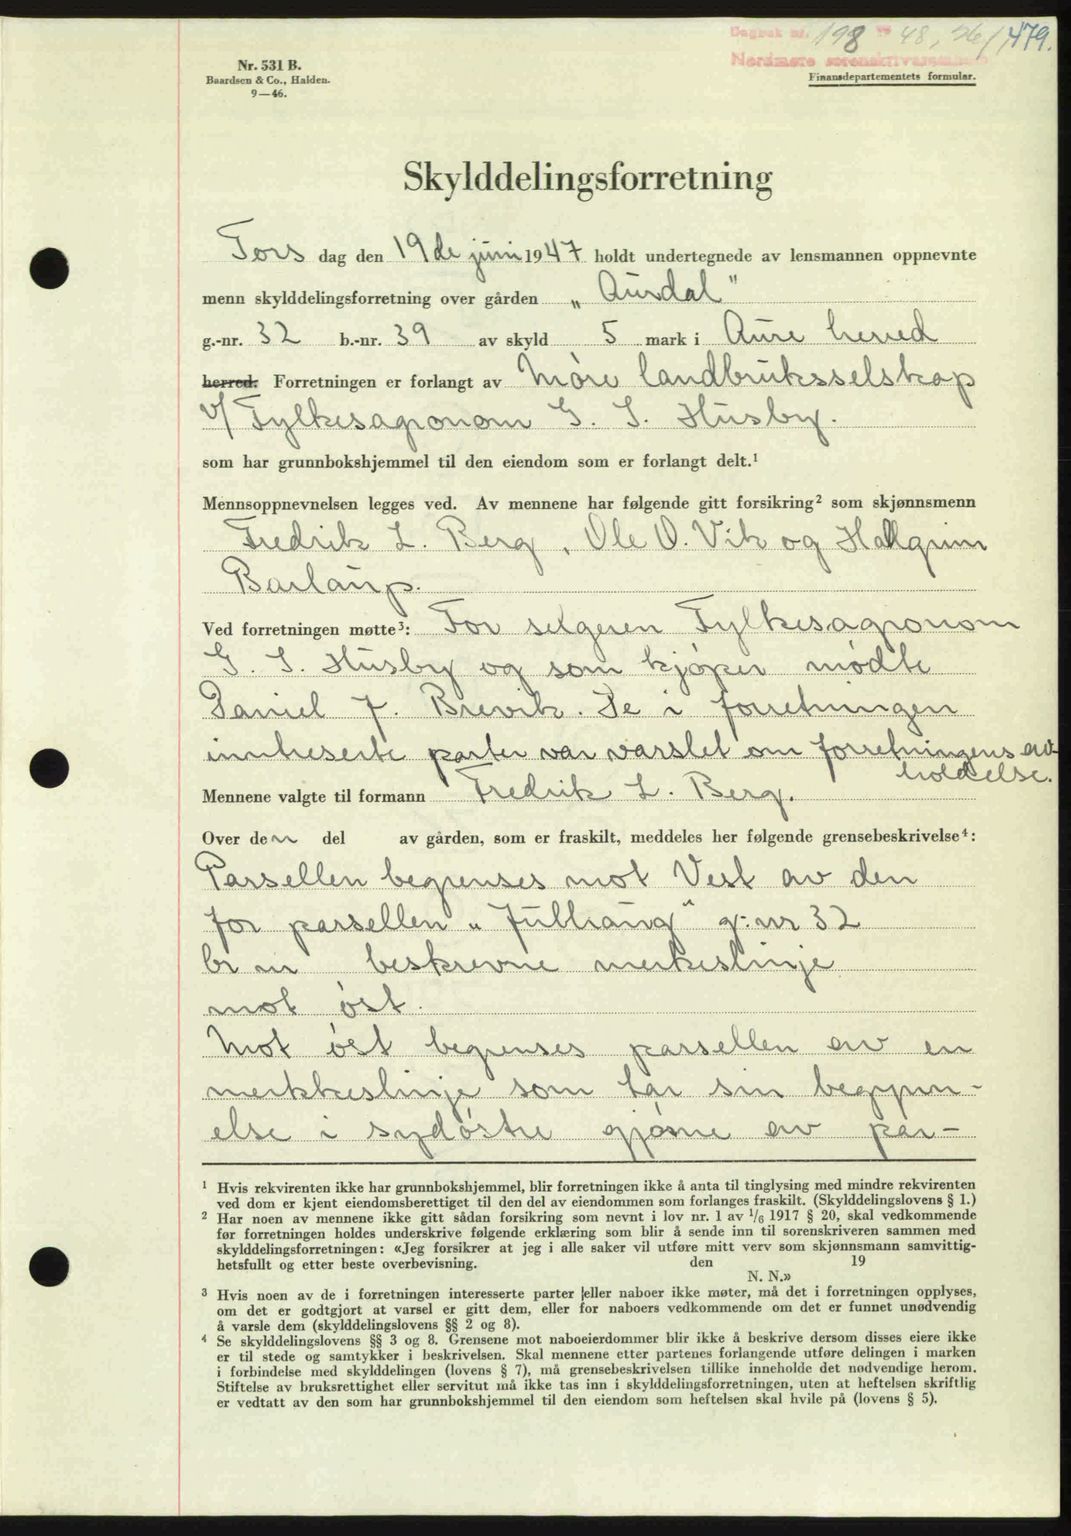 Dagbok nr. 198 19 48, 26/1, 479.
Nordmøre sorenskriverembete
Nr. 531 B.
Baardsen & Co., Halden.
9—46.
Finansdepartementets formular.
Skylddelingsforretning
Tors dag den 19de juni 1947 holdt undertegnede av lensmannen oppnevnte
menn skylddelingsforretning over gården „Aurdal"
g.-nr. 32 b.-nr. 39 av skyld 5 mark i Aure herred
herred. Forretningen er forlangt av Møre landbruksselskap
v/ Fylkesagronom G. S. Husby.
som har grunnbokshjemmel til den eiendom som er forlangt delt.¹
Mennsoppnevnelsen legges ved. Av mennene har følgende gitt forsikring² som skjønnsmenn
Fredrik L. Berg, Ole O. Vik og Hallgrim
Barlaup.
Ved forretningen møtte³: For selgeren Fylkesagronom
G. S. Husby og som kjøper mødte
Daniel J. Brevik. De i forretningen
inntreserte parter var varslet om forretningens av-
holdelse.
Mennene valgte til formann Fredrik L. Berg.
Over den del av gården, som er fraskilt, meddeles her følgende grensebeskrivelse⁴:
Parsellen begrenses mot Vest av den
for parsellen „Julhaug" g.nr 32
br nr beskrevne merkeslinje
mot øst.
Mot øst begrenses parsellen av en
merkkeslinje som tar sin begynn-
else i sydøstre gjørne av par-
¹ Hvis rekvirenten ikke har grunnbokshjemmel, blir forretningen ikke å anta til tinglysing med mindre rekvirenten
ved dom er kjent eiendomsberettiget til den del av eiendommen som forlanges fraskilt. (Skylddelingslovens § 1.)
² Har noen av mennene ikke gitt sådan forsikring som nevnt i lov nr. 1 av 1/6 1917 § 20, skal vedkommende
før forretningen holdes underskrive følgende erklæring som blir å sende inn til sorenskriveren sammen med
skylddelingsforretningen: «Jeg forsikrer at jeg i alle saker vil utføre mitt verv som skjønnsmann samvittig-
hetsfullt og etter beste overbevisning. den 19
N. N.»
³ Hvis noen av de i forretningen interesserte parter eller naboer ikke møter, må det i forretningen opplyses,
om det er godtgjort at varsel er gitt dem, eller for naboers vedkommende om det er funnet unødvendig
å varsle dem (skylddelingslovens §§ 2 og 8).
⁴ Se skylddelingslovens §§ 3 og 8. Grensene mot naboeierdommer blir ikke å beskrive dersom disses eiere ikke
er til stede og samtykker i beskrivelsen. Skal mennene etter partenes forlangende utføre delingen i marken
i forbindelse med skylddelingen (lovens § 7), må grensebeskrivelsen tillike inneholde det nødvendige herom.
Stiftelse av bruksrettighet eller servitut må ikke tas inn i skylddelingsforretningen, uten at heftelsen skriftlig
er vedtatt av den som har grunnbokshjemmel til den eiendom som heftelsen skal hvile på (lovens § 5).